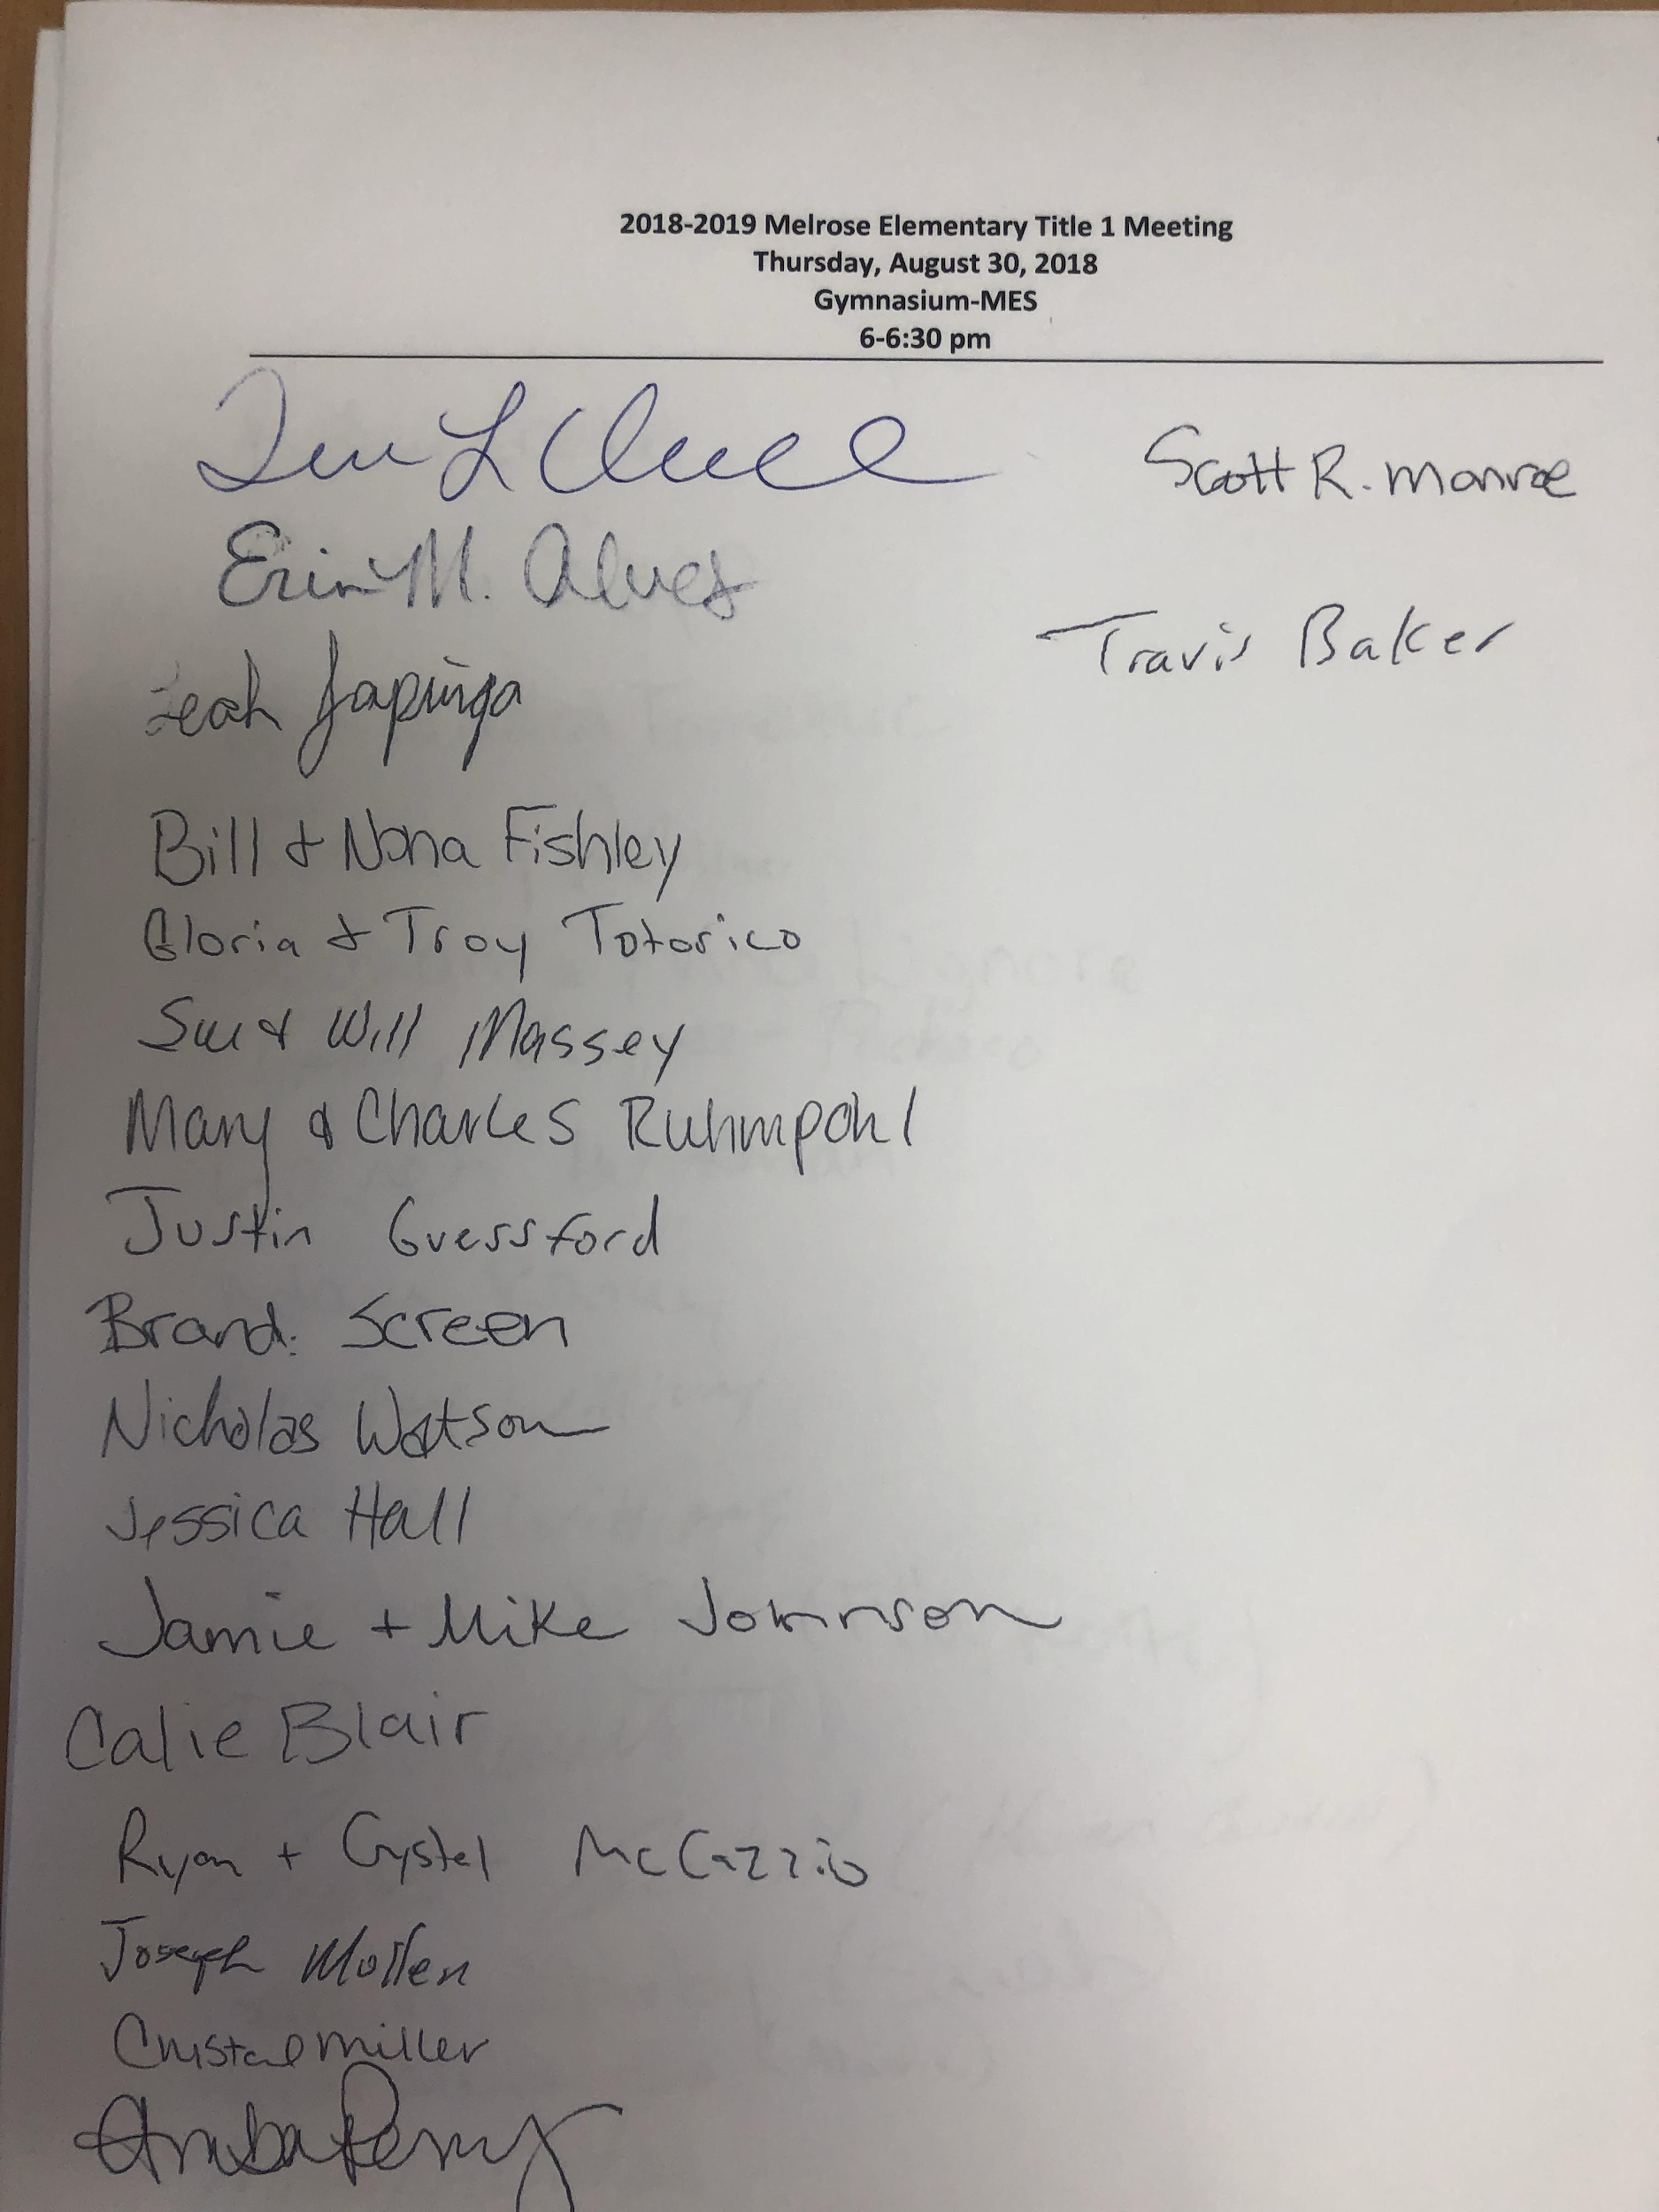 2018-2019 Melrose Elementary Title 1 Meeting
Thursday, August 30, 2018
Gymnasium-MES
6-6:30 pm
L
Scott R. Monroe
Erin M. Alves
Travis Baker
Leah Japinga
Bill & Nona Fishley
Gloria & Troy Totorico
Sue & Will Massey
Mary & Charles Ruhmpohl
Justin Guessford
Brandi Screen
Nicholas Watson
Jessica Hall
Jamie + Mike Johnson
Calie Blair
Ryan + Crystal McCazzio
Joseph
Crystal Miller
Perry